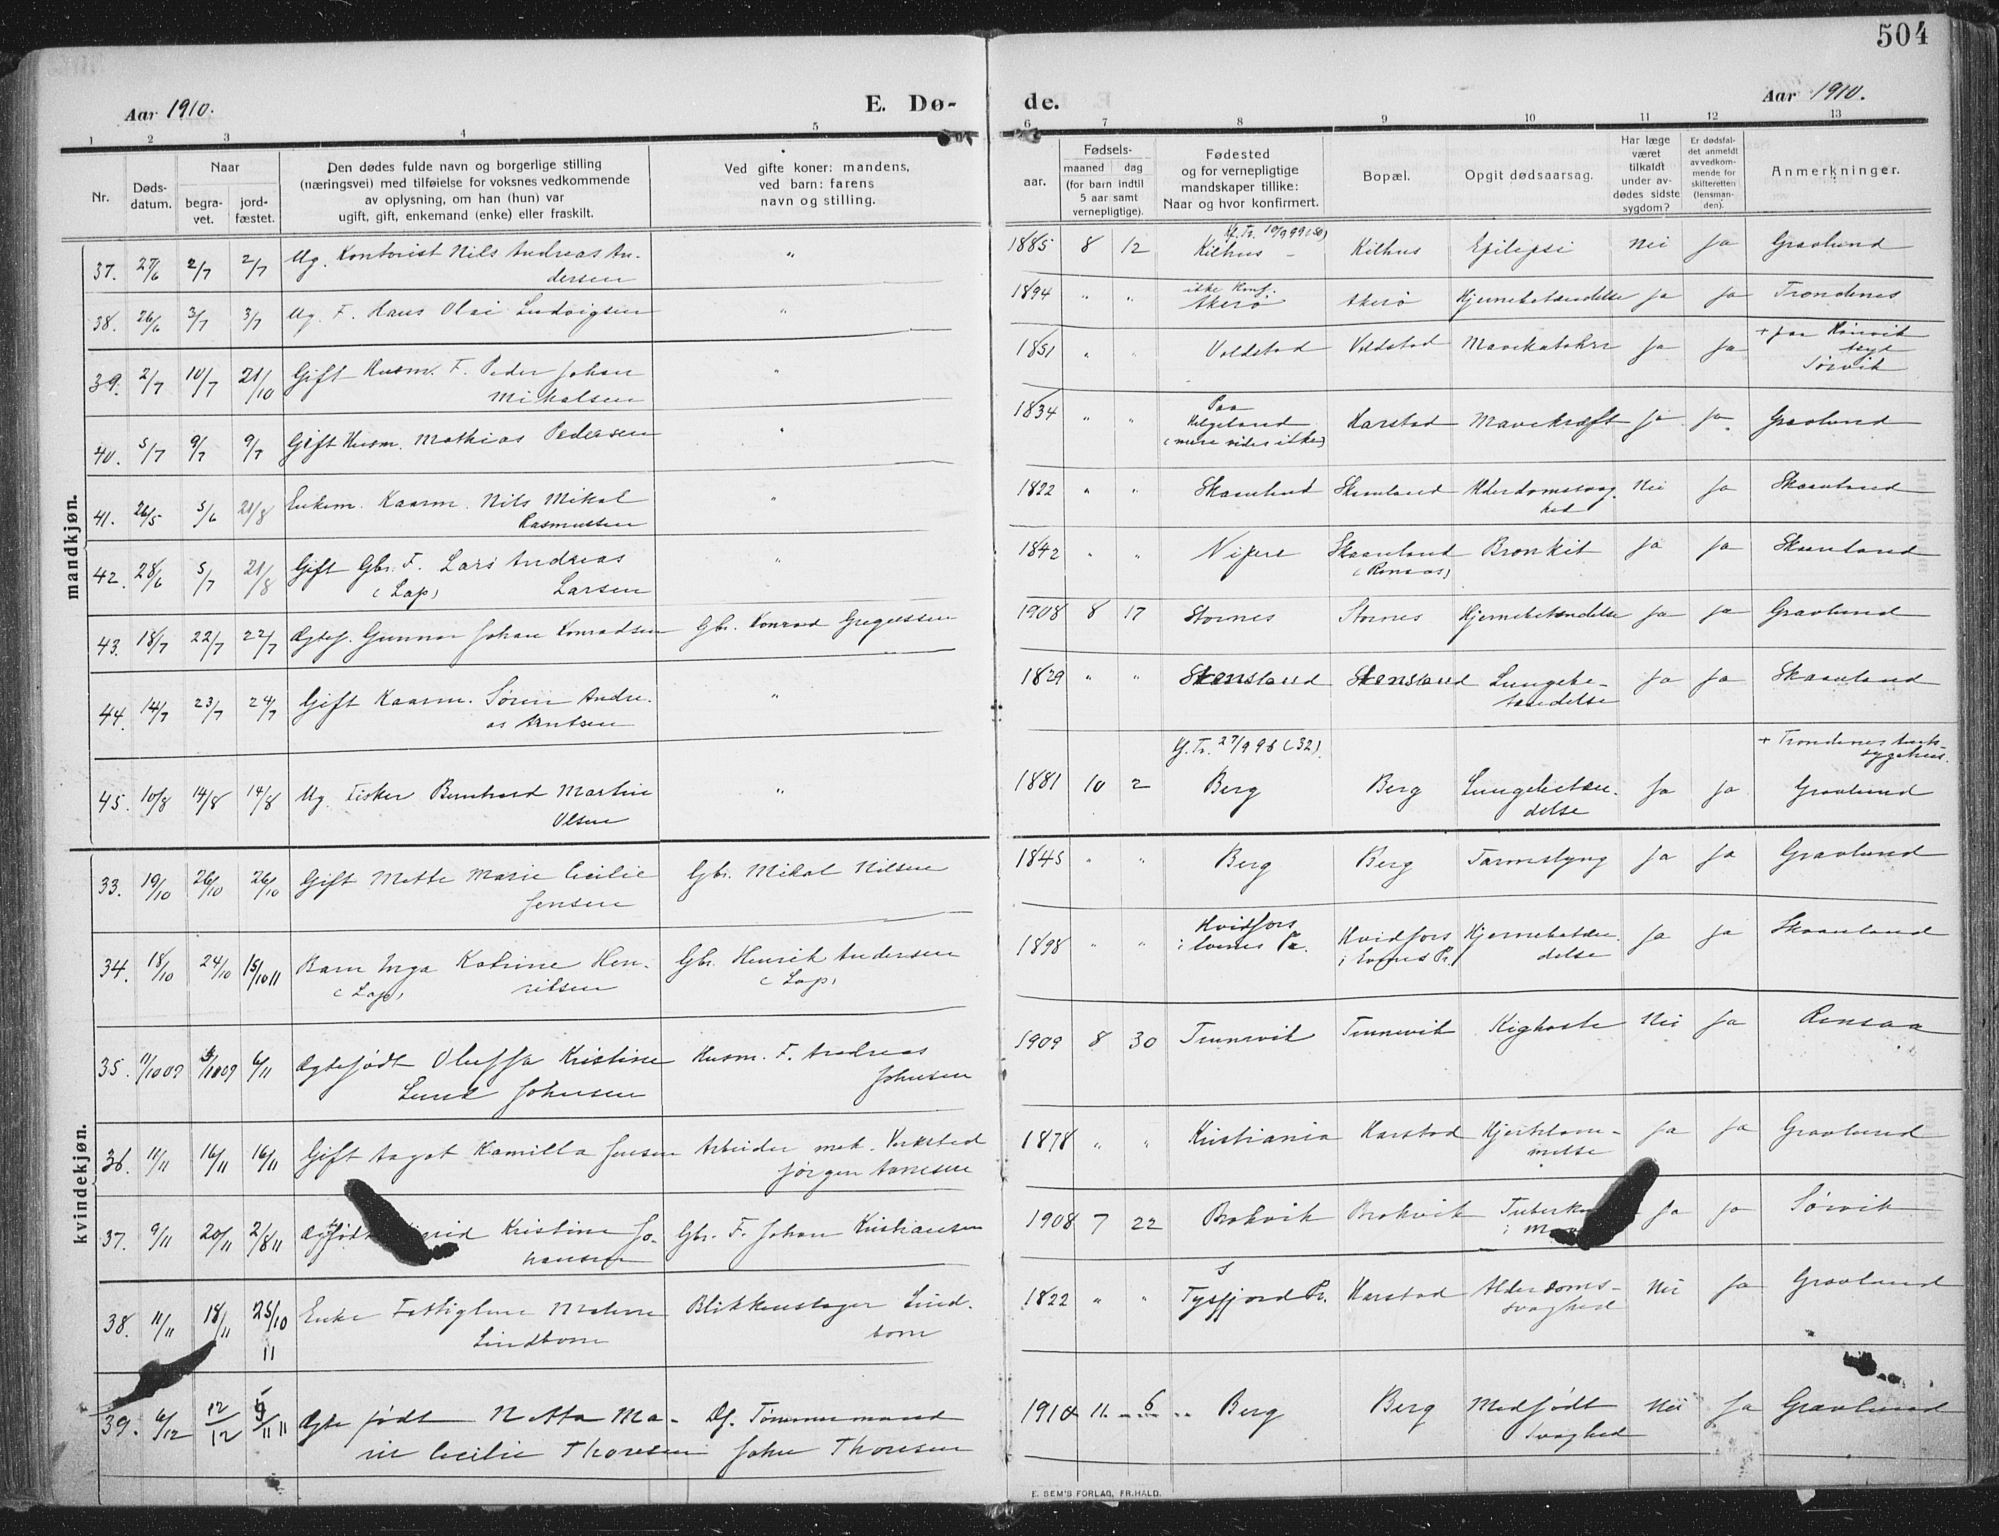 504
Aar 1910.
E. Dø-
de.
Aar 1910.
1 2 3 4 5 6 7 8 9 10 11 12 13
Nr.
Døds-
datum.
Naar
begra-
vet.
jord-
fæstet.
Den dødes fulde navn og borgerlige stilling
(næringsvei) med tilføielse for voksnes vedkommende
av oplysning, om han (hun) var
ugift, gift, enkemand (enke) eller fraskilt.
Ved gifte koner: mandens,
ved barn: farens
navn og stilling.
aar.
Fødsels-
maaned dag
(for barn indtil
5 aar samt
vernepligtige).
Fødested
og for vernepligtige
mandskaper tillike:
Naar og hvor konfirmert.
Bopæl.
Opgit dødsaarsag.
Har læge
været
tilkaldt
under av-
dødes sidste
sygdom?
Er dødsfal-
det anmeldt
av vedkom-
mende for
skifteretten
(lensman-
den).
Anmerkninger.
mandkjøn.
37. 27/6 2/7 2/7 Ug. Kontorist Nils Andreas An-
dersen " 1885 8 12 Kilhus Kilhus Epilepsi Nei Ja Gravlund
38. 26/6 3/7 3/7 Ug. F. Hans Olai Ludvigsen " 1894 " " ikke konf.
Akerø Akerø Hjernebetændelse Ja Ja Trondenes
39. 2/7 10/7 21/10 Gift Husm. F. Peder Johan
Mikalsen " 1851 " " Voldstad Voldstad Mavekatahr Ja Ja + paa
Sørvik
40. 5/7 9/7 9/7 Gift Husm. Mathias Pedersen " 1834 " " Paa
Helgeland
(mere vides ikke) Harstad Mavekræft Ja Ja Gravlund
41. 26/5 5/6 21/8 Enkem. Kaarm. Nils Mikal
Rasmussen " 1822 " " Skaanland Skaanland Alderdomssvag
hed Nei Ja Skaanland
42. 28/6 5/7 21/8 Gift Gbr. F. Lars Andreas
(Lap) Larsen " 1842 " " Nipen Skaanland
(Rensaa) Bronkit Ja Ja Skaanland
43. 18/7 22/7 22/7 Ægtef. Gunnar Johan Konradsen Gbr. Konrad Gregussen 1908 8 17 Stornes Stornes Hjernebetændelse Ja Ja Gravlund
44. 14/7 23/7 24/7 Gift Kaarm. Søren Andre-
as Arntsen " 1829 " " Stensland Stensland Lungebe-
tændelse Ja Ja Skaanland
45. 10/8 14/8 14/8 Ug. Fisker Bernhard Martin
Olsen " 1881 10 2 27/9 96 (32).
Berg Berg Lungebetæn-
delse Ja Ja + Trondenes
sygehus.
Gravlund
kvindekjøn.
33. 19/10 26/10 26/10 Gift Mette Marie Cecilie
Jensen Gbr. Mikal Nilsen 1845 " " Berg Berg Tarmslyng Ja Ja Gravlund
34. 18/10 24/10 15/10 11 Barn Inga Katrine Hen-
(Lap) riksen Gbr. Henrik Andersen
(Lap) 1898 " " Hvidfors
i Evenes Pr. Hvidfors
i Evenes Pr. Hjernebetæn-
delse Ja Ja Skaanland
35. 11/10 09 /10 09 6/11 Ægtefødt Oluffa Kristine
Lund Johnsen Husm. F. Andreas
Johnsen 1909 8 30 Tennevik Tennevik Kighoste Nei Ja Rensaa
36. 11/11 16/11 16/11 Gift Aagot Kamilla Jensen Arbeider mek. Verksted
Jørgen Aanesen 1878 " " Kristiania Harstad Hjertelam-
melse Ja Ja Gravlund
37. 9/11 20/11 2/8 11 Kristine Jo-
hansen Gbr. F. Johan Kristiansen 1908 7 22 Brokvik Brokvik
i Ja Ja Sørvik
38. 11/11 18/11 25/10 11 Enke Malene
Lindbom Blikkenslager Lind-
bom 1822 " " Tysfjord Pr. Harstad Alderdoms-
svaghed Nei Ja Gravlund
39. 6/12 12/12 /11 11 Ægtefødt Netta Ma-
rie Cecilie Thoresen Df. Tømmermand
John Thoresen 1910 11 6 Berg Berg Medfødt
Svaghed Nei Ja Gravlund
E. SEM'S FORLAG, FR.HALD.